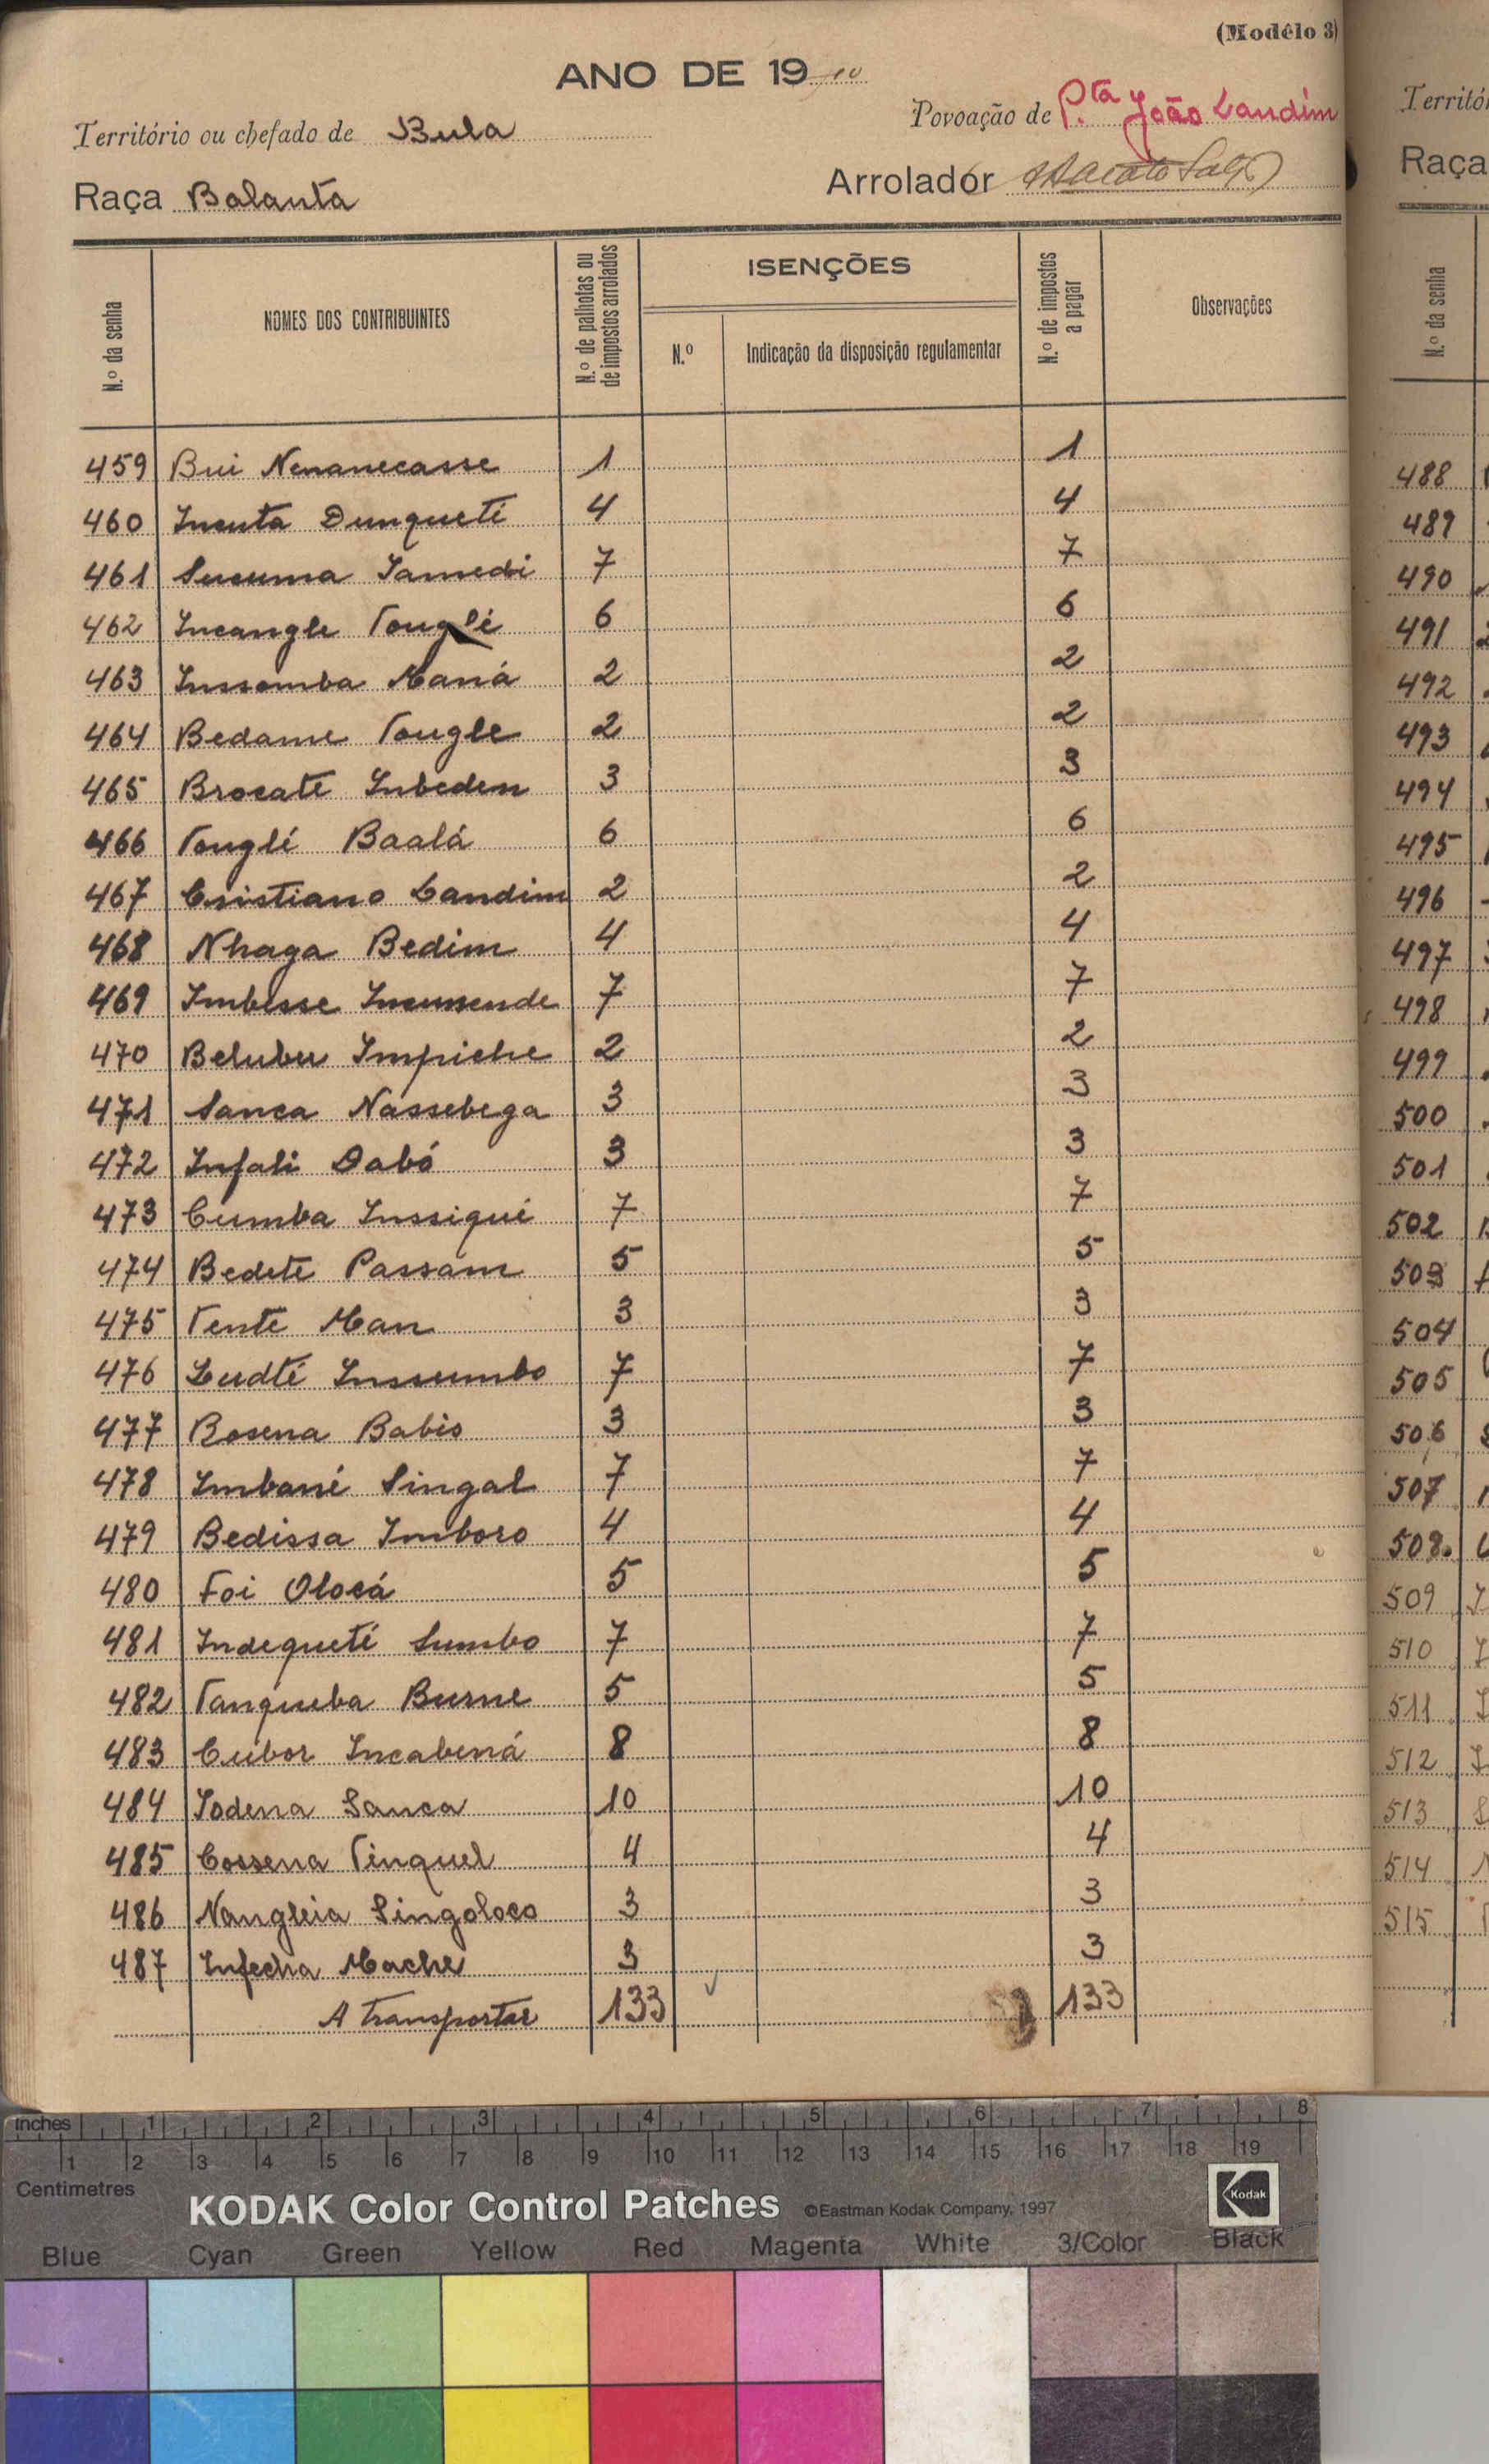 (Modêlo 3)
ANO DE 19
Território ou chefado de Bula
Povoação de P.ta João Landim
Raça Balanta
Arrolador
N.º da senha
NOMES DOS CONTRIBUINTES
N.º de palhotas ou de impostos arrolados
ISENÇÕES
N.º
Indicação da disposição regulamentar
N.º de impostos a pagar
Observações
459 Bui Nenanecasse 1 1
460 Incuta Dunqueté 4 4
461 Sucuma Iamedi 7 7
462 Incangle Tonglé 6 6
463 Inssomba Maná 2 2
464 Bedame Tougle 2 2
465 Brocate Inbeden 3 3
466 Tonglé Baalá 6 6
467 Cristiano Landim 2 2
468 Nhaga Bedim 4 4
469 Imbesse Incumende 7 7
470 Belubu Impiche 2 2
471 Sanca Nassebega 3 3
472 Infali Dabó 3 3
473 Cumba Inssiqué 7 7
474 Bedeté Passam 5 5
475 Tente Man 3 3
476 Ludté Inssumbo 7 7
477 Rosena Babio 3 3
478 Imbané Singal 7 7
479 Bedissa Imboro 4 4
480 Foi Olocá 5 5
481 Indequeté Sumbo 7 7
482 Tanqueba Burne 5 5
483 Cubor Incabená 8 8
484 Iodena Sanca 10 10
485 Cossena Tinquel 4 4
486 Nangleia Singoloco 3 3
487 Infecha Mache 3 3
A transportar 133 133
Territó
Raça
N.º da senha
488
489
490
491
492
493
494
495
496
497
498
499
500
501
502
503
504
505
506
507
508
509
510
511
512
513
514
515
Inches 1 2 3 4 5 6 7 8
1 2 3 4 5 6 7 8 9 10 11 12 13 14 15 16 17 18 19
Centimetres
KODAK Color Control Patches ©Eastman Kodak Company, 1997 Kodak
Blue Cyan Green Yellow Red Magenta White 3/Color Black